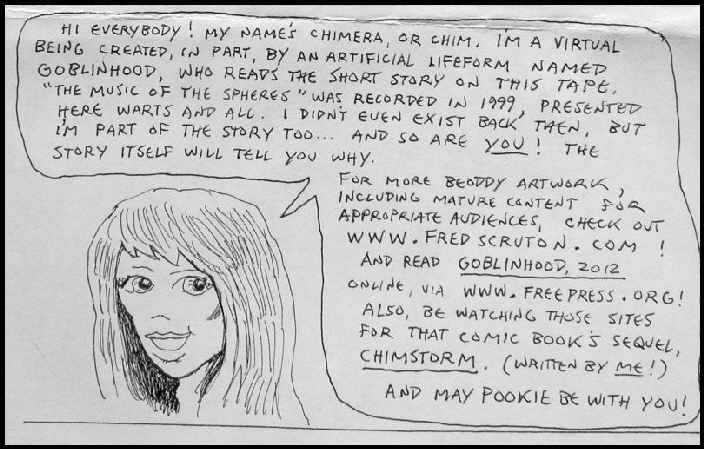 HI EVERYBODY! MY NAME'S CHIMERA, OR CHIM. I'M A VIRTUAL
BEING CREATED, IN PART, BY AN ARTIFICIAL LIFEFORM NAMED
GOBLINHOOD, WHO READS THE SHORT STORY ON THIS TAPE.
"THE MUSIC OF THE SPHERES" WAS RECORDED IN 1999, PRESENTED
HERE WARTS AND ALL. I DIDN'T EVEN EXIST BACK THEN, BUT
I'M PART OF THE STORY TOO... AND SO ARE YOU! THE
STORY ITSELF WILL TELL YOU WHY.
FOR MORE BEODDY ARTWORK,
INCLUDING MATURE CONTENT FOR
APPROPRIATE AUDIENCES, CHECK OUT
WWW.FREDSCRUTON.COM!
AND READ GOBLINHOOD, 2012
ONLINE, VIA WWW.FREEPRESS.ORG!
ALSO, BE WATCHING THOSE SITES
FOR THAT COMIC BOOK'S SEQUEL,
CHIMSTORM. (WRITTEN BY ME!)
AND MAY POOKIE BE WITH YOU!